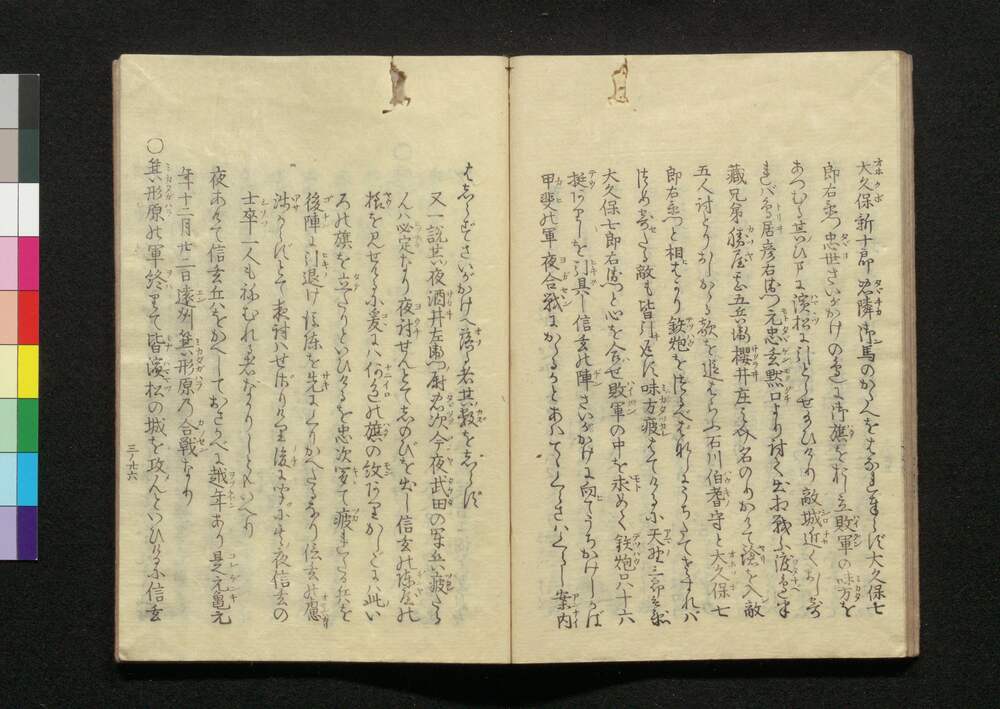 大久保新十郎忠隣御馬のかたへをはなれまゐらせず大久保七
郎右衛門忠世さいがかけの邊に御旗を押立敗軍の味方を
あつむる其ひまに濱松に引とらせ給ひけり敵城近くおしよす
れバ鳥居彦右衛門元忠玄黙口より討て出相戦ふ渡邉半
藏兄弟勝屋甚五兵衛櫻井庄之助名のりかけて鎗を入敵
五人討とりおしかゝる敵を追はらふ石川伯耆守と大久保七
郎右衛門と相はかり鉄炮をつるべはなしうちたてられバ
つめよせたる敵も皆引退く味方疲はてけるに天野三郎兵衛
大久保七郎右衛門と心を合せ敗軍の中を求めて鉄炮只十六
挺ありしを引具し信玄の陣さいがかけに向てうちかけしかば
甲斐の軍夜合戦にかゝるとあわてさわぎし案内
はしらずさいがかけへ落る者其數をしらず
又一説其夜酒井左衛門尉忠次今夜武田の軍兵疲たら
んハ必定なり夜討せんとてしのびを出し信玄の陣屋の
様を見せけるに爰にハ何色の旗の紋ありかしこにハ此い
ろの旗を立たりといひけるを忠次聞て疲はてたる兵を
後陣に引退け後陣を先にくりかへたるなり信玄の慮
淺からずとて夜討ハせざりけり後に聞に其夜信玄の
士卒一人も祢むれる者なかりしとぞいへり
夜あけて信玄兵をかへしておさかべに越年あり是元亀元
年十二月廿二日遠州箕形原乃合戦なり
〇箕形原の軍終りて皆濱松の城を攻んといひけるに信玄
三ノ廿六